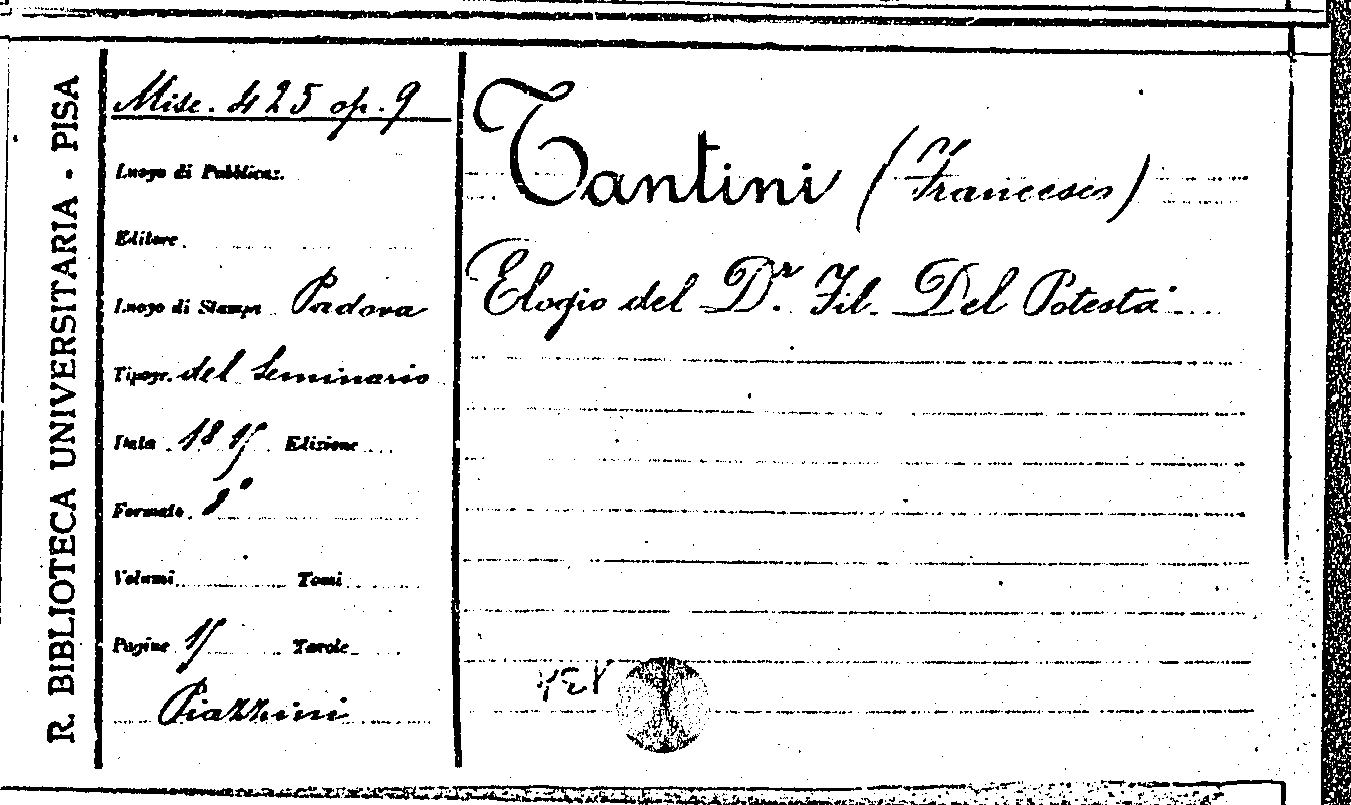 R. BIBLIOTECA UNIVERSITARIA - PISA
Misc. 425 op. 9
Luogo di Pubblicaz.
Editore
Luogo di Stampa Padova
Tipogr. del Seminario
Data 1815 Edizione
Formato 8°
Volumi Tomi
Pagine 15 Tavole
Piazzini
Tantini (Francesco)
Elogio del Dr. Fil. Del Potestà